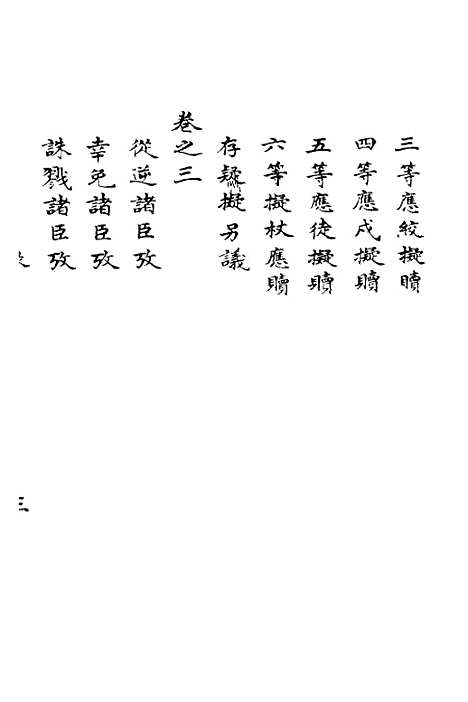 三等應絞擬贖
四等應戍擬贖
五等應徒擬贖
六等擬杖應贖
存疑擬另議
卷之三
從逆諸臣攷
幸免諸臣攷
誅戮諸臣攷
三